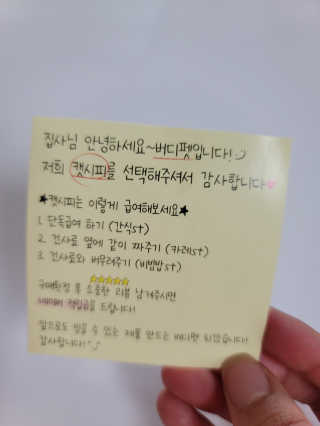 집사님 안녕하세요~버디펫입니다!
저희 캣시피를 선택해주셔서 감사합니다♥
★캣시피는 이렇게 급여해보세요★
1. 단독급여 하기 (간식st)
2. 건사료 옆에 같이 짜주기 (카레st)
3. 건사료와 버무려주기 (비빔밥st)
★★★★★
구매확정 후 소중한 리뷰 남겨주시면
네이버 적립금을 드립니다!
앞으로도 믿을 수 있는 제품 만드는 버디펫 되겠습니다!
감사합니다!